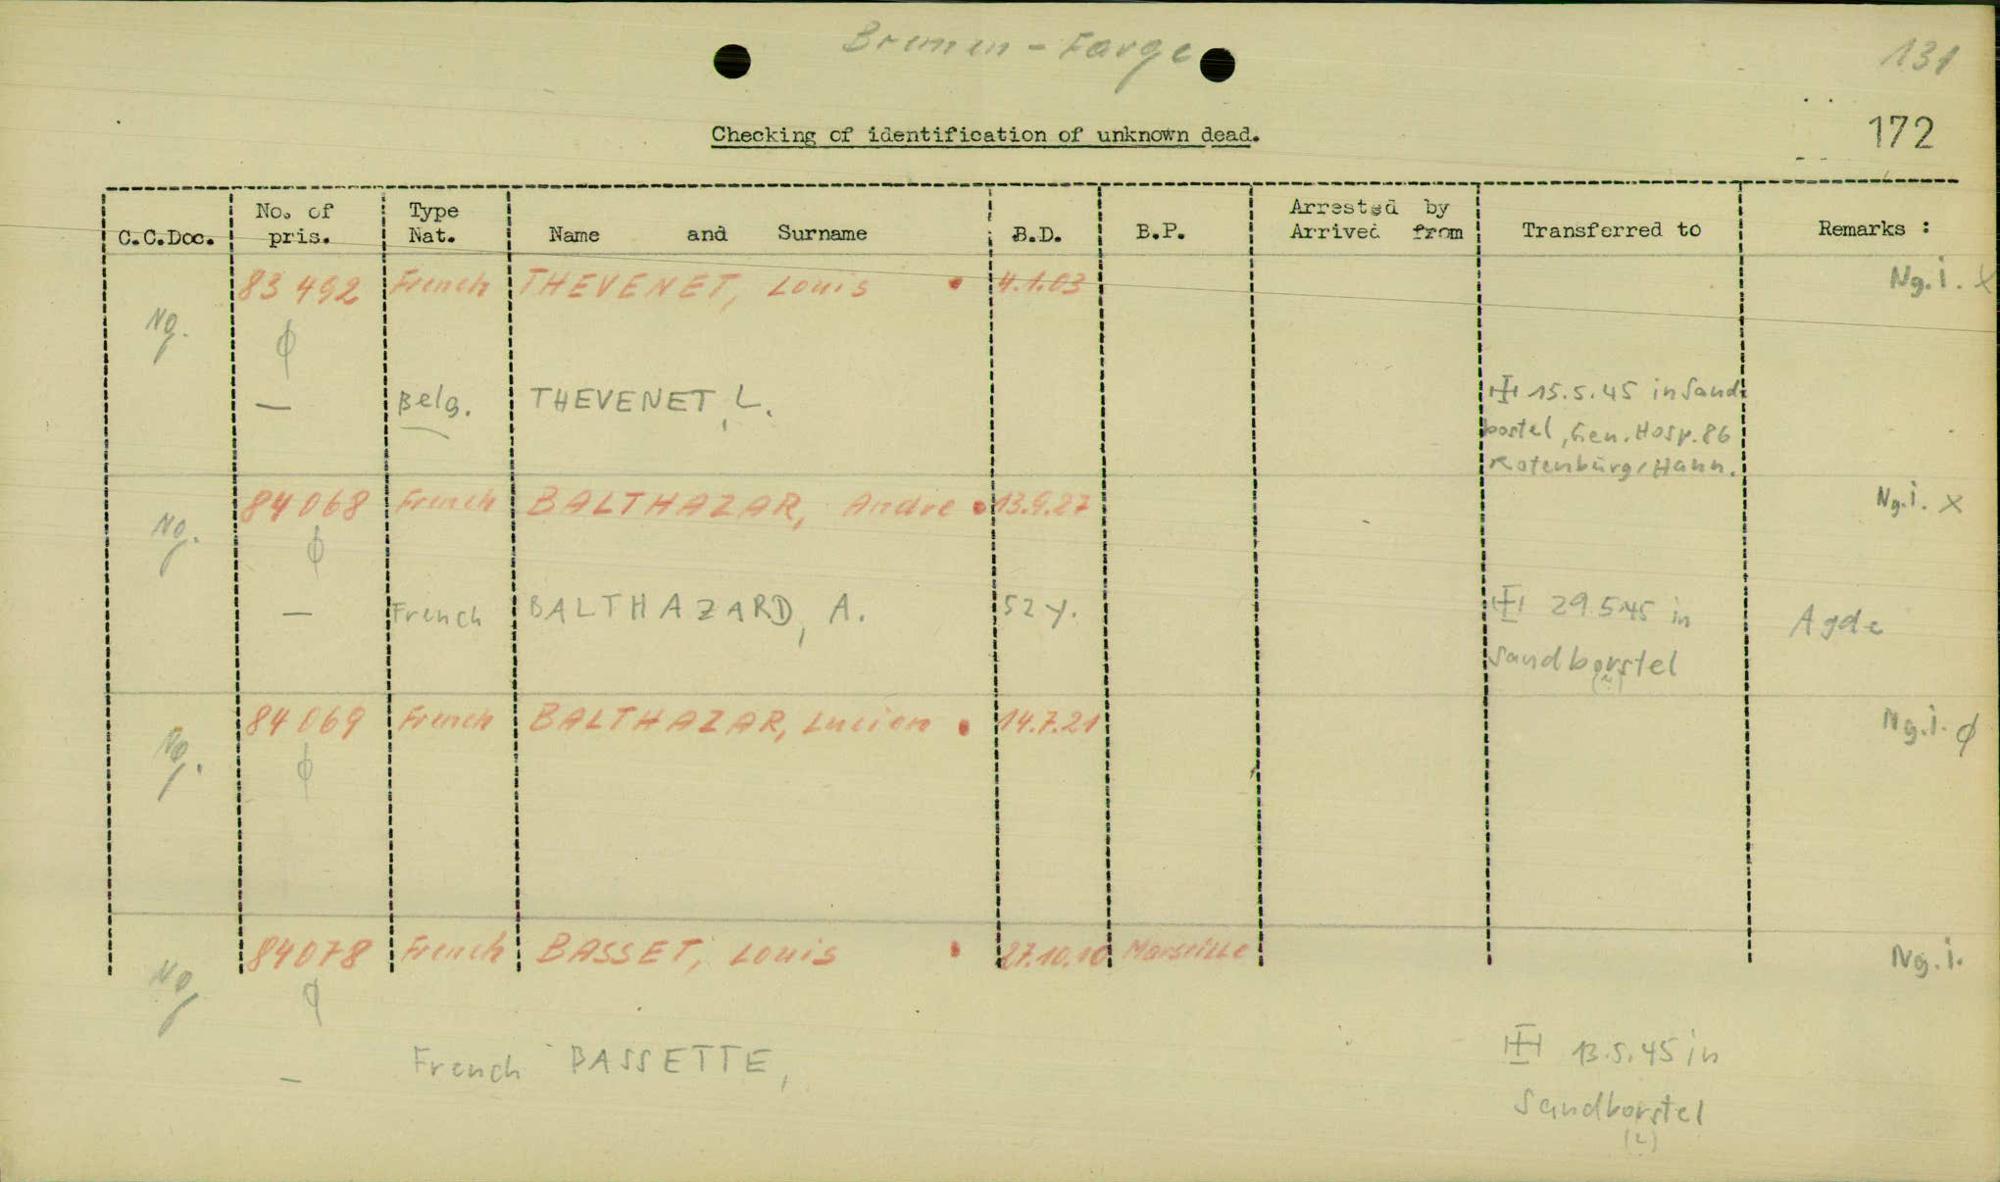 Bremen - Farge
131
Checking of identification of unknown dead.
172
C.C.Doc. No. of pris. Type Nat. Name and Surname B.D. B.P. Arrested by Arrived from Transferred to Remarks :
83 492 French THEVENET, Louis • 4.1.03 Ng.i. x
Ng. φ
— Belg. THEVENET, L. 15.5.45 in Sand-
bostel, Gen. Hosp. 86
Rotenburg/Hann.
84 068 French BALTHAZAR, Andre • 13.9.27 Ng.i. x
Ng. φ
— French BALTHAZARD, A. 52 y. 29.5.45 in Agde
Sandborstel
84 069 French BALTHAZAR, Lucien • 14.7.21 Ng.i. φ
Ng. φ
84078 French BASSET, Louis • 27.10.10 Marseille Ng.i.
Ng φ
— French BASSETTE, 13.5.45 in
Sandborstel